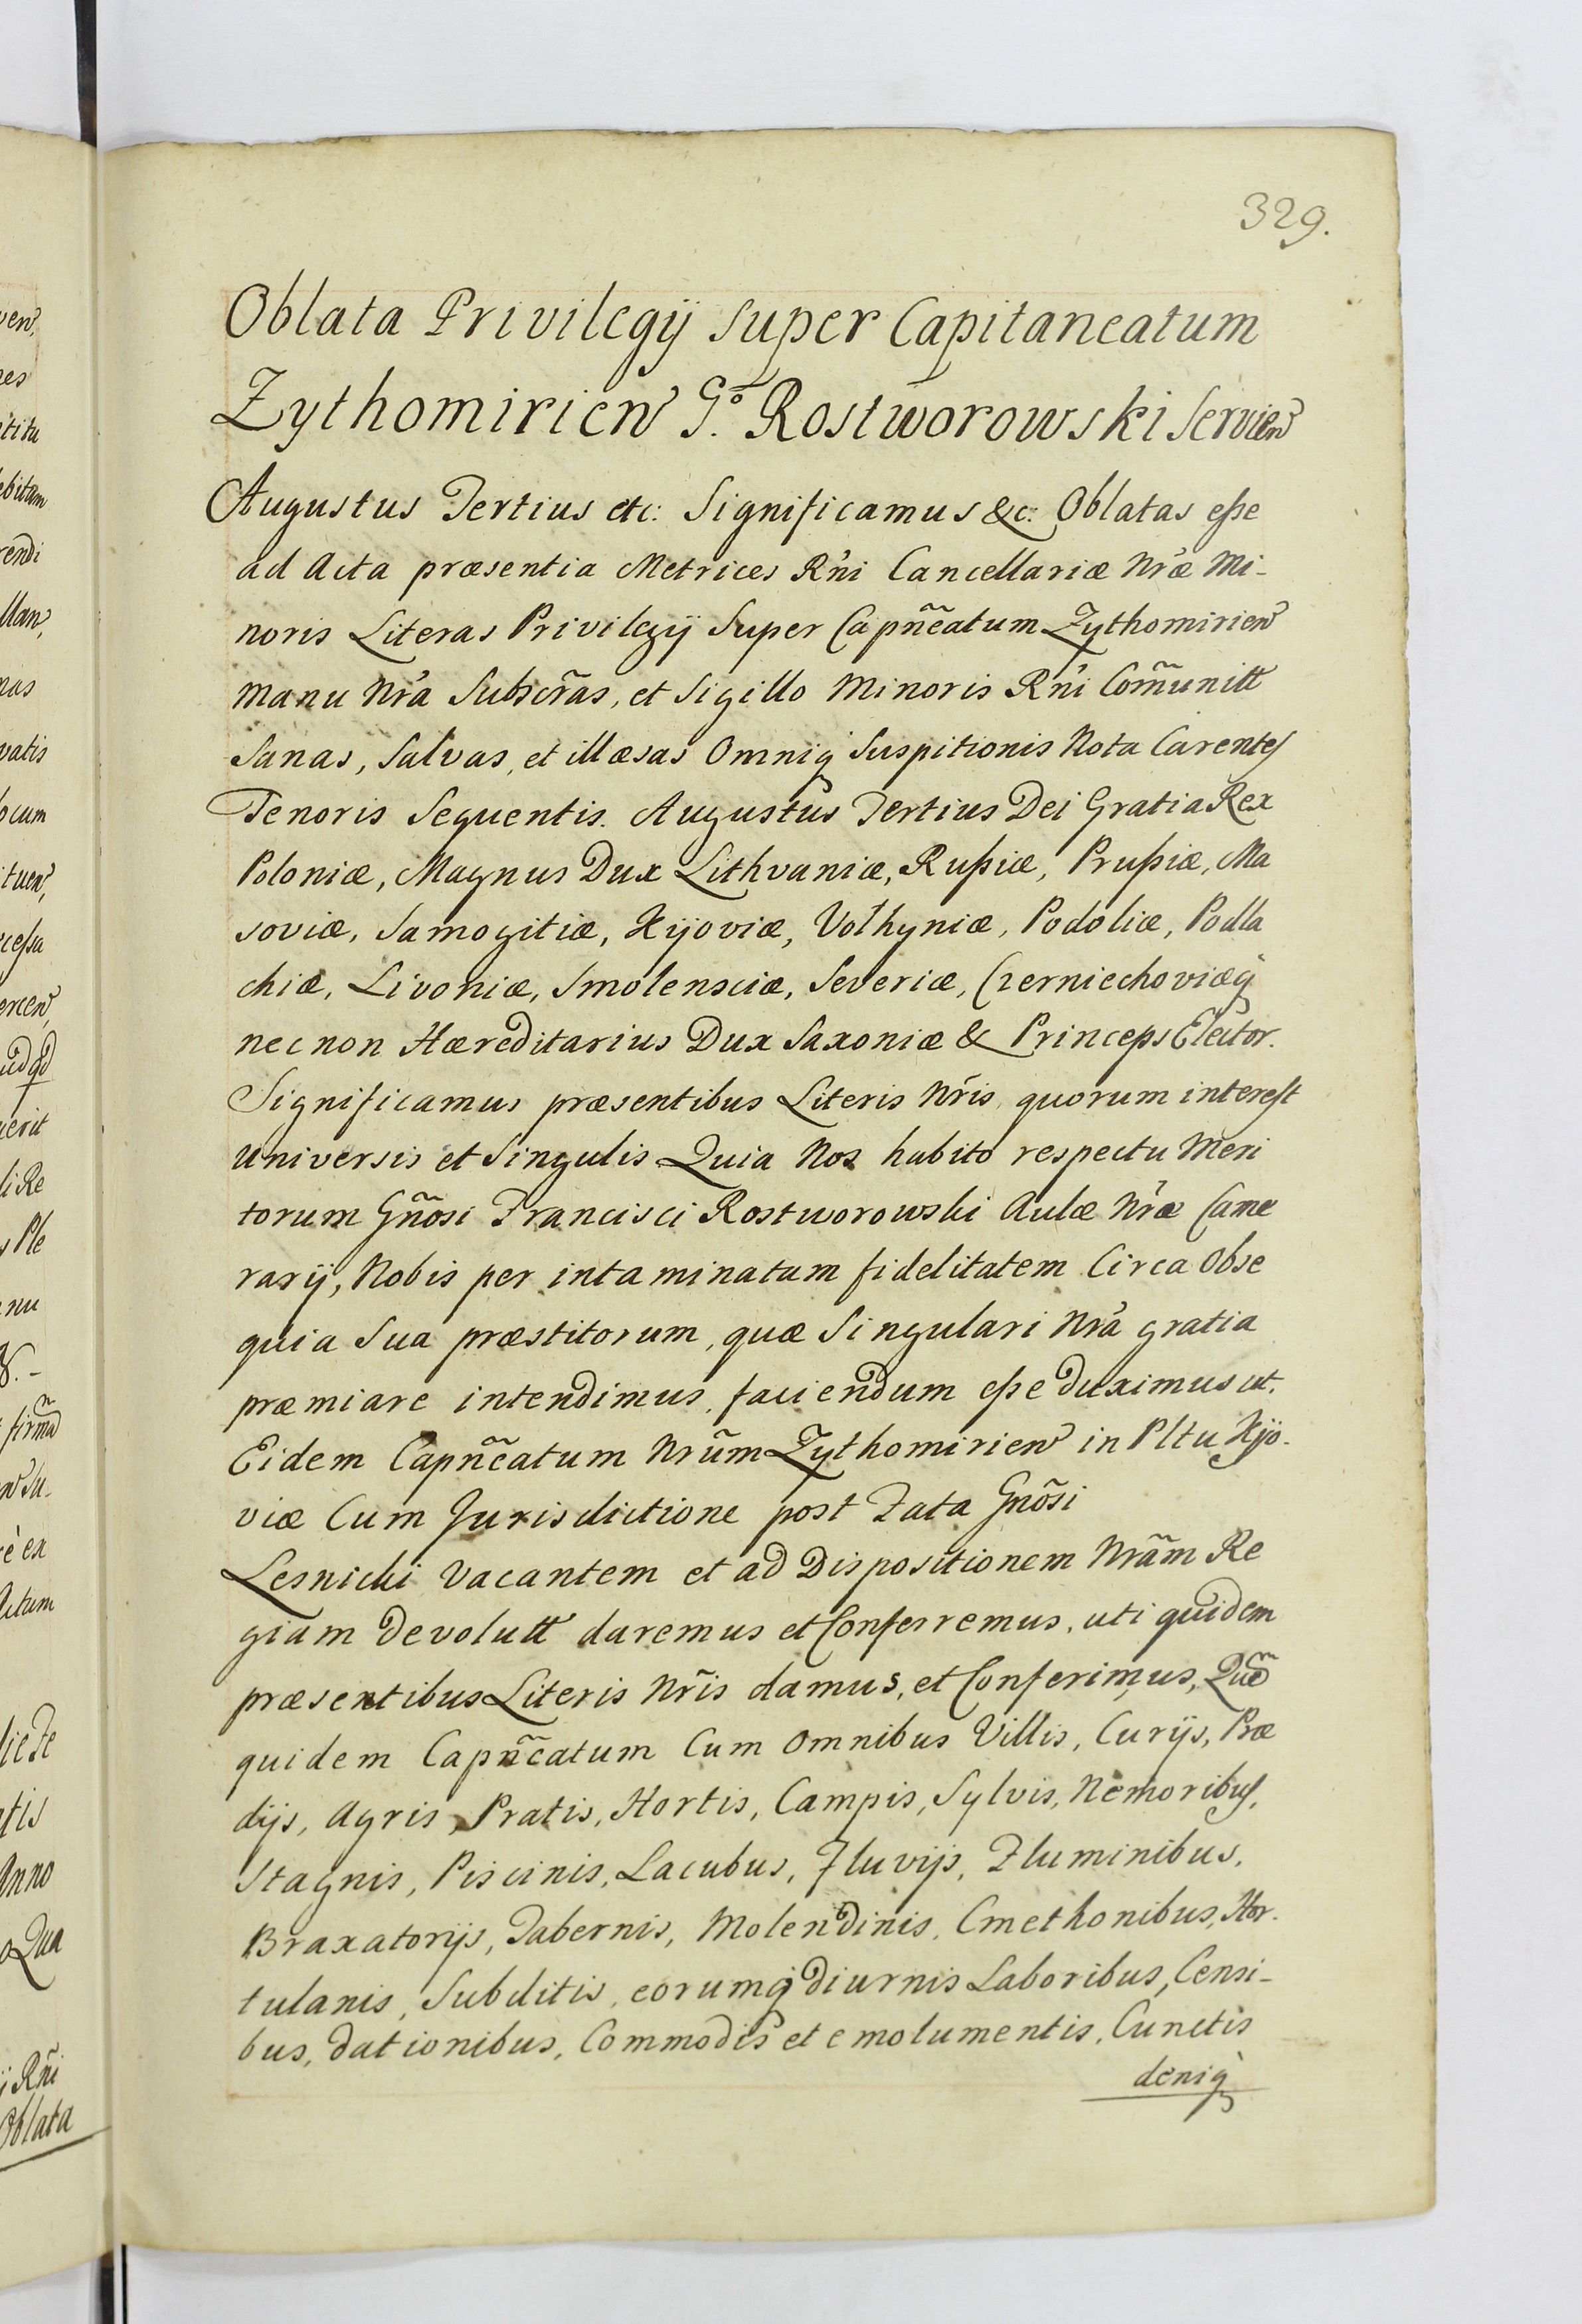 329.
Oblata Privilegÿ super Capitaneatum
Zythomirien̄ Gº. Rostworowski Servien̄
Augustus Tertius etc: Significamus &c: Oblatas eſse
ad Acta præsentia Metrices Rñi Cancellariæ Nræ Mi-
noris Literas Privilegÿ Super Capñeatum Zythomirien̄
manu Nrã Subscr̃as, et Sigillo Minoris Rñi Com̃unitt
Sanas, Salvas, et illæsas Omniq̷ Suspitionis Nota Carentes
Tenoris Sequentis. Augustus Tertius Dei Gratia Rex
Poloniæ, Magnus Dux Lithvaniæ, Ruſsiæ, Pruſsiæ, Ma
soviæ, Samogitiæ, Kijoviæ, Volhyniæ, Podoliæ, Podla
chiæ, Livoniæ, Smolensciæ, Severiæ, Czerniechoviæq̷
nec non Hæreditarius Dux Saxoniæ & Princeps Elector.
Significamus præsentibus Literis Nr̃is, quorum interest
universis et Singulis Quia Nos habito respectu Meri
torum Gñosi Francisci Rostworowski Aulæ Nræ Came
rarÿ, Nobis per intaminatam fidelitatem Circa Obse
quia Sua præstitorum, quæ Singulari Nrã gratia
præmiare intendimus, faciendum eſse duximus ut.
Eidem Capñeatum Nrũm Zythomirien̄ in Pltu Kijo-
viæ Cum Jurisdictione post Fata Gñosi
Lesnicki Vacantem et ad Dispositionem Nrãm Re
giam devolutt daremus et Conferremus, uti quidem
præsentibus Literis Nr̃is damus, et Conferimus, Quẽ
quidem Capñeatum Cum Omnibus Villis, Curÿs, Præ
dÿs, Agris, Pratis, Hortis, Campis, Sylvis, Nemoribus,
Stagnis, Piscinis, Lacubus, Fluvÿs, Fluminibus,
Braxatorÿs, Tabernis, Molendinis, Cmethonibus, Hor-
tulanis, Subditis, eorumq̷ diurnis Laboribus, Censi-
bus, dationibus, Commodis et emolumentis, Cunctis
deniq̷